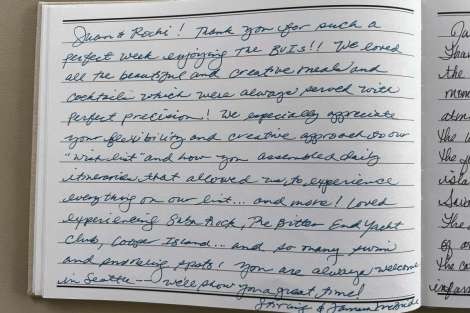 Juan & Rochi! Thank you for such a
perfect week enjoying the BVIs!! We loved
all the beautiful and creative meals and
cocktails which were always served with
perfect precision! We especially appreciate
your flexibility and creative approach to our
"wish list" and how you assembled daily
itineraries that allowed us to experience
everything on our list... and more! Loved
experiencing Saba Rock, The Bitter End Yacht
Club, Cooper Island... and so many swim
and snorkeling spots! You are always welcome
in Seattle -- we'll show you a great time!
&
Ja
Than
the
mom
atm
the
the
isla
Sava
The
of
the co